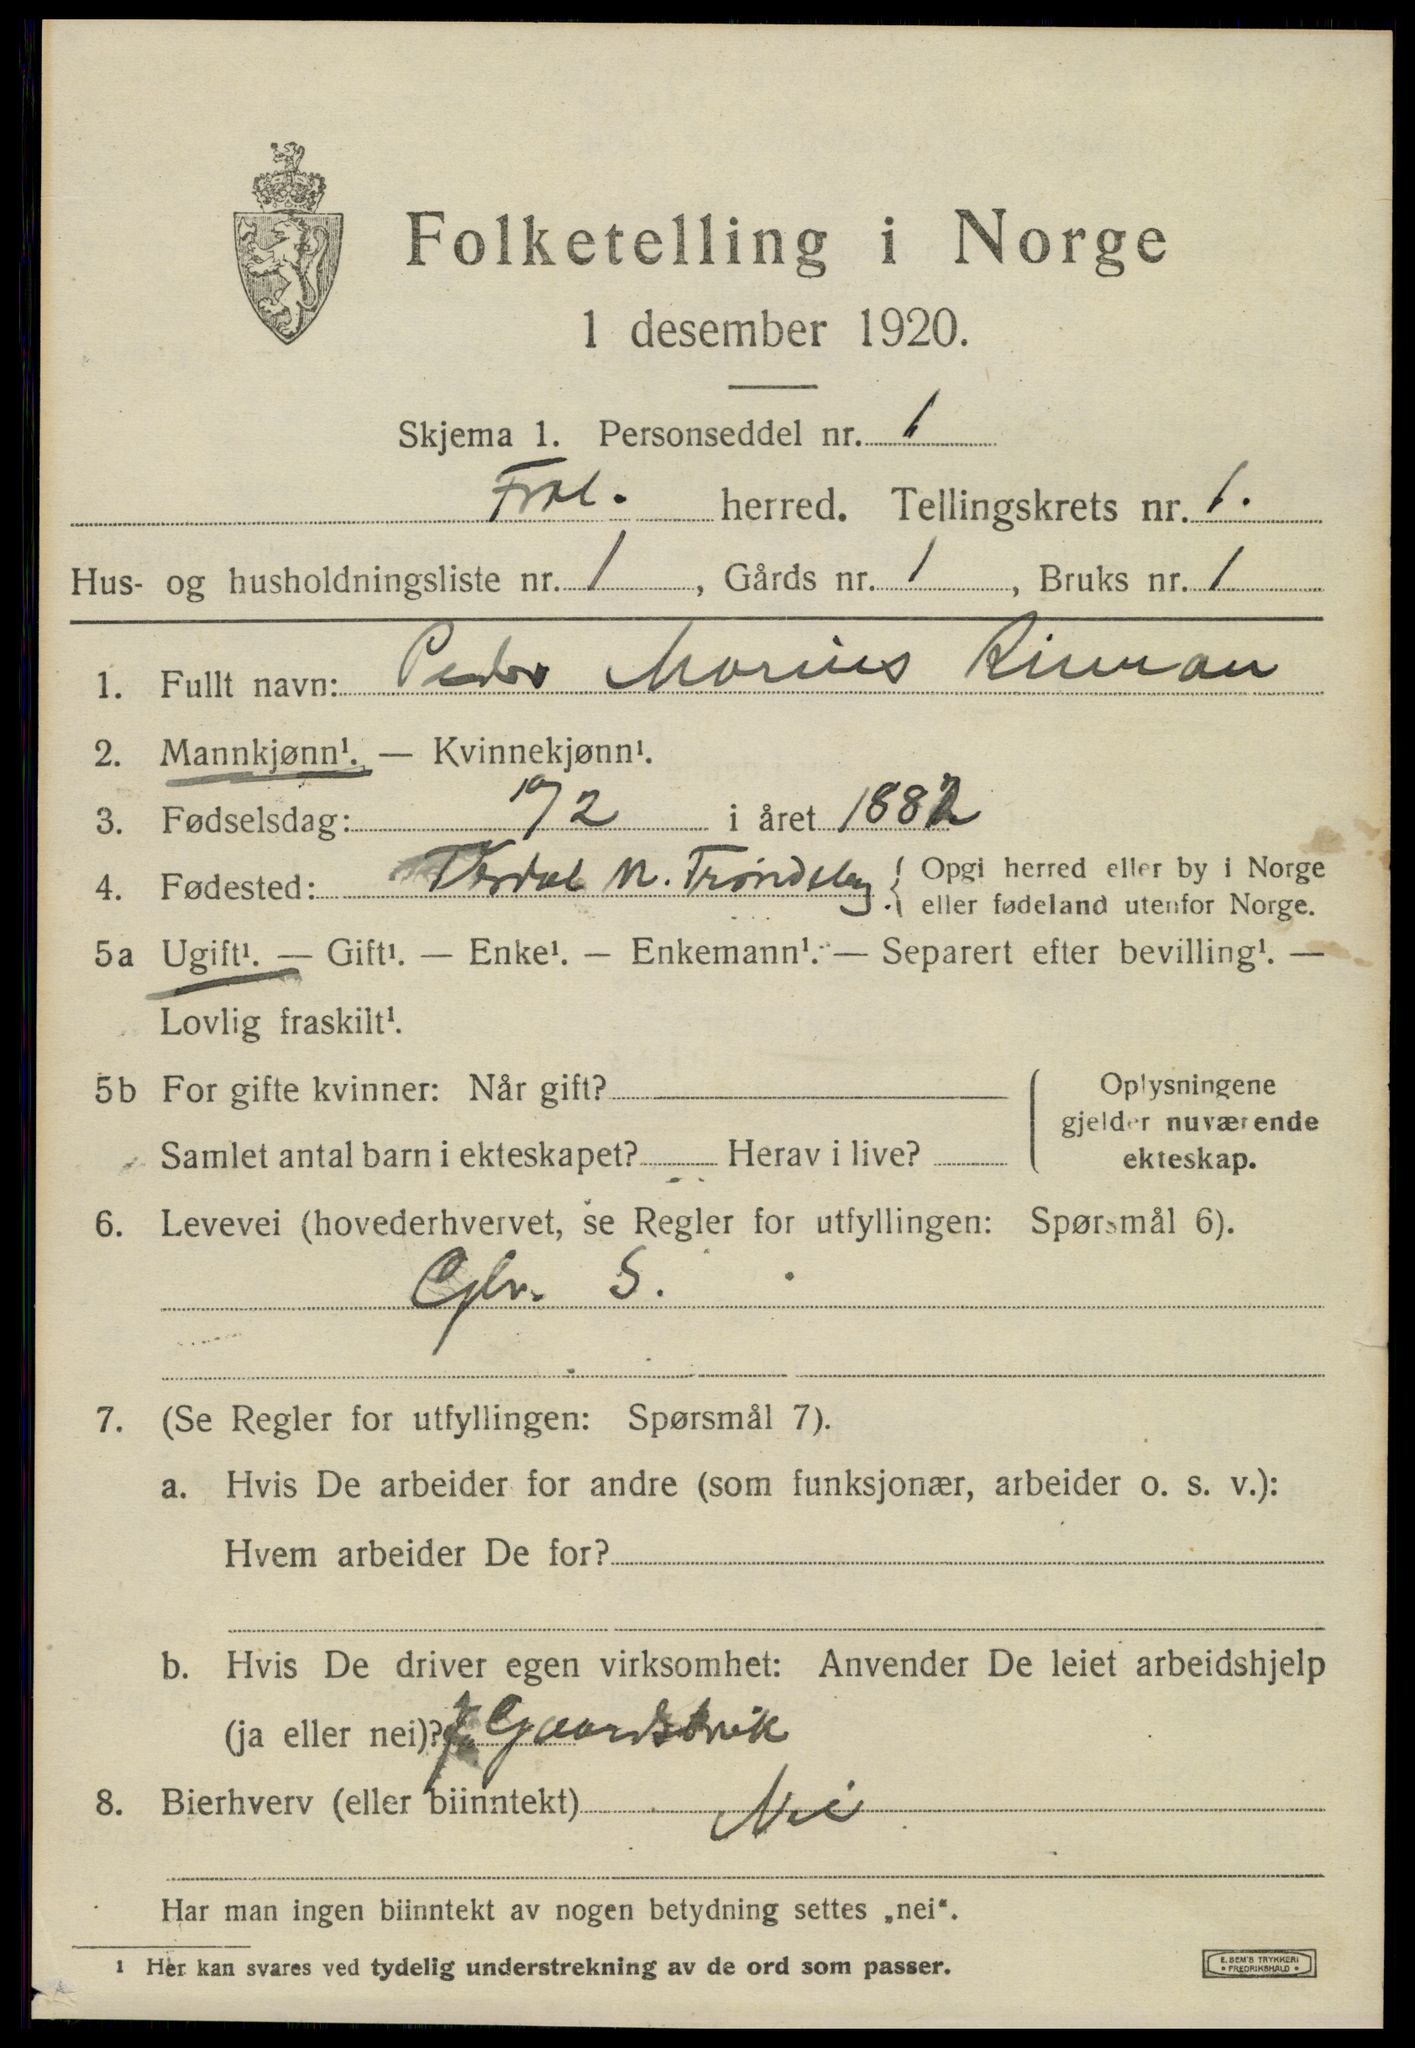 Folketelling i Norge
1 desember 1920.
Skjema 1. Personseddel nr. 1
Frol. herred. Tellingskrets nr. 1.
Hus- og husholdningsliste nr. 1, Gårds nr. 1, Bruks nr. 1
1. Fullt navn: Peder Marius
2. Mannkjønn¹. — Kvinnekjønn¹.
3. Fødselsdag: 19/2 i året 1882
4. Fødested: Verdal N. Trøndelag { Opgi herred eller by i Norge
eller fødeland utenfor Norge.
5a Ugift¹. — Gift¹. — Enke¹. — Enkemann¹. — Separert efter bevilling¹. —
Lovlig fraskilt¹.
5b For gifte kvinner: Når gift? Oplysningene
gjelder nuværende
Samlet antal barn i ekteskapet? Herav i live? ekteskap.
6. Levevei (hovederhvervet, se Regler for utfyllingen: Spørsmål 6).
S.
7. (Se Regler for utfyllingen: Spørsmål 7).
a. Hvis De arbeider for andre (som funksjonær, arbeider o. s. v.):
Hvem arbeider De for?
b. Hvis De driver egen virksomhet: Anvender De leiet arbeidshjelp
(ja eller nei)? Ja Gaardsbruk
8. Bierhverv (eller biinntekt) Nei
Har man ingen biinntekt av nogen betydning settes „nei“.
¹ Her kan svares ved tydelig understrekning av de ord som passer.
E. SEM'S TRYKKERI
• FREDRIKSHALD •